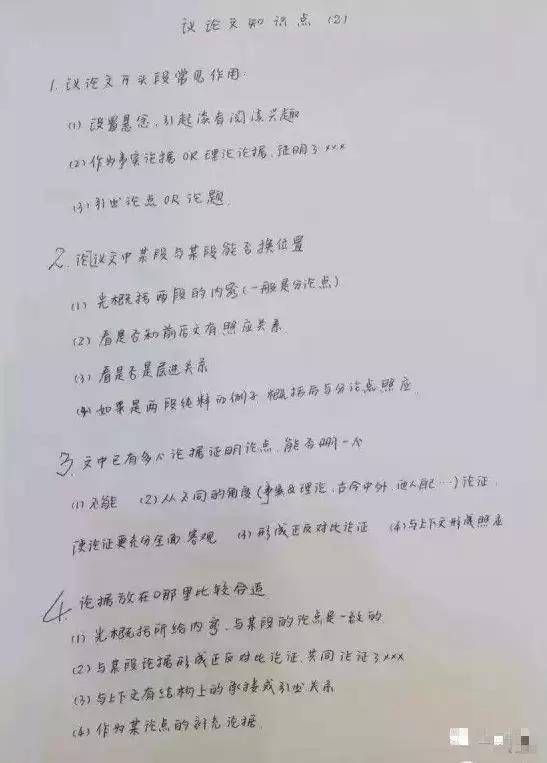 议论文知识点 (2)
1. 议论文开头段常见作用.
(1) 设置悬念, 引起读者阅读兴趣
(2) 作为事实论据 OR 理论论据, 证明了xxx
(3) 引出论点 OR 论题.
2. 论议文中某段与某段能否换位置
(1) 先概括两段的内容 (一般是分论点)
(2) 看是否和前后文有照应关系
(3) 看是否是层进关系
(4) 如果是两段纯料的例子 概括后与分论点照应.
3. 文中已有多个论据证明论点, 能否删一个
(1) 不能 (2) 从不同的角度 (事实&理论, 古今中外 他人自己…) 论证,
使论证更充分全面客观 (3) 形成正反对比论证 (4) 与上下文形成照应
4. 论据放在哪里比较合适
(1) 先概括所给内容, 与某段的论点是一致的
(2) 与某段论据形成正反对比论证, 共同论证了xxx
(3) 与上下文有结构上的承接或引出关系
(4) 作为某论点的补充论据.